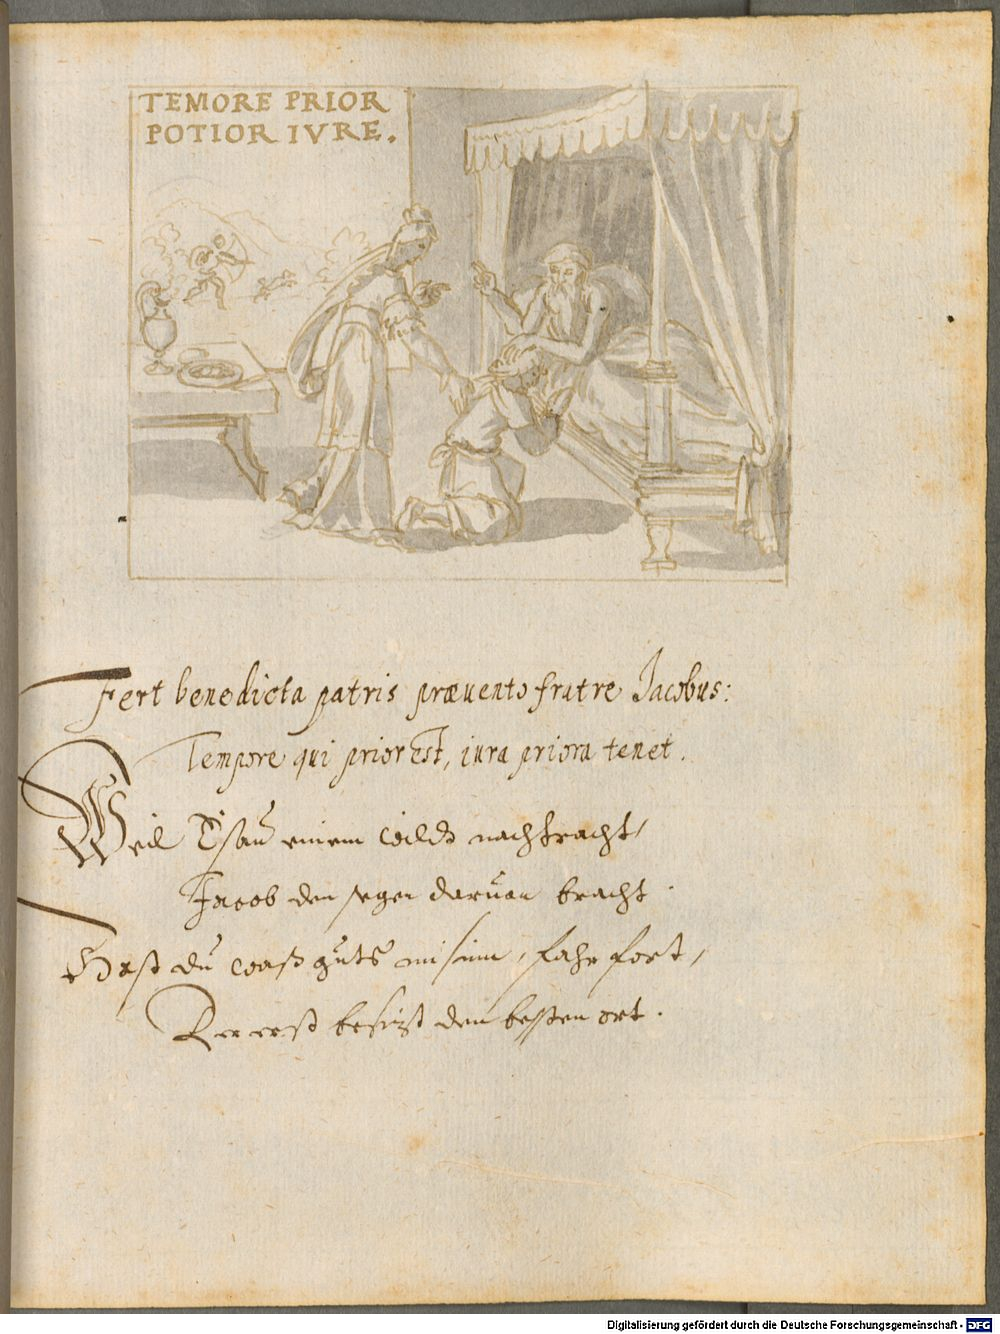 TEMORE PRIOR
POTIOR IVRE.
Fert benedicta patris præuento fratre Jacobus:
Tempore qui prior est, iura priora tenet.
Weil Esau einem wildt nachtracht/
Jacob den segen daruon bracht.
Hast du waß guts im sinn, fahr fort,
Der erst besizt den besten ort.
Digitalisierung gefördert durch die Deutsche Forschungsgemeinschaft - DFG